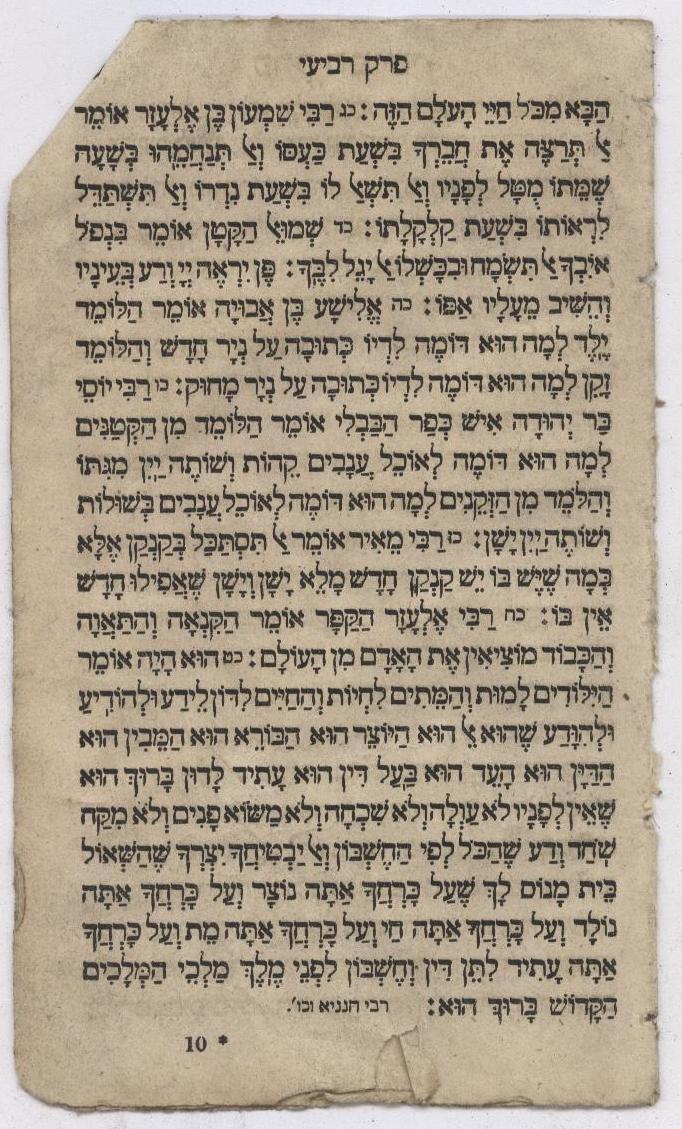 פרק רביעי
הַבָּא מִכֹּל חַיֵּי הָעֹלָם הַזֶּה: כג רַבִּי שִׁמְעוֹן בֶּן אֶלְעָזָר אוֹמֵר
אַל תְּרַצֶּה אֶת חֲבֵרְךָ בִּשְׁעַת כַּעְסוֹ וְאַל תְּנַחֲמֵהוּ בְּשָׁעָה
שֶׁמֵּתוֹ מֻטָּל לְפָנָיו וְאַל תִּשְׁאַל לוֹ בִּשְׁעַת נִדְרוֹ וְאַל תִּשְׁתַּדֵּל
לִרְאוֹתוֹ בִּשְׁעַת קַלְקָלָתוֹ: כד שְׁמוּאֵל הַקָּטָן אוֹמֵר בִּנְפֹל
אוֹיִבְךָ אַל תִּשְׂמָח וּבִכָּשְׁלוֹ אַל יָגֵל לִבֶּךָ: פֶּן יִרְאֶה יְיָ וְרַע בְּעֵינָיו
וְהֵשִׁיב מֵעָלָיו אַפּוֹ: כה אֱלִישָׁע בֶּן אֲבוּיָה אוֹמֵר הַלּוֹמֵד
יֶלֶד לְמָה הוּא דוֹמֶה לִדְיוֹ כְּתוּבָה עַל נְיָר חָדָשׁ וְהַלּוֹמֵד
זָקֵן לְמָה הוּא דוֹמֶה לִדְיוֹ כְּתוּבָה עַל נְיָר מָחוּק: כו רַבִּי יוֹסֵי
בַּר יְהוּדָה אִישׁ כְּפַר הַבַּבְלִי אוֹמֵר הַלּוֹמֵד מִן הַקְּטַנִּים
לְמָה הוּא דוֹמֶה לְאוֹכֵל עֲנָבִים קֵהוֹת וְשׁוֹתֶה יַיִן מִגִּתּוֹ
וְהַלֹּמֵד מִן הַזְּקֵנִים לְמָה הוּא דוֹמֶה לְאוֹכֵל עֲנָבִים בְּשׁוּלוֹת
וְשׁוֹתֶה יַיִן יָשָׁן: כז רַבִּי מֵאִיר אוֹמֵר אַל תִּסְתַּכַּל בְּקַנְקַן אֶלָּא
בְּמָה שֶׁיֶּשׁ בּוֹ יֵשׁ קַנְקַן חָדָשׁ מָלֵא יָשָׁן וְיָשָׁן שֶׁאֲפִילוּ חָדָשׁ
אֵין בּוֹ: כח רַבִּי אֶלְעָזָר הַקַּפָּר אוֹמֵר הַקִּנְאָה וְהַתַּאֲוָה
וְהַכָּבוֹד מוֹצִיאִין אֶת הָאָדָם מִן הָעוֹלָם: כט הוּא הָיָה אוֹמֵר
הַיִּלּוֹדִים לָמוּת וְהַמֵּתִים לִחְיוֹת וְהַחַיִּים לִדּוֹן לֵידַע וּלְהוֹדִיעַ
וּלְהִוָּדַע שֶׁהוּא אֵל הוּא הַיּוֹצֵר הוּא הַבּוֹרֵא הוּא הַמֵּבִין הוּא
הַדַּיָּן הוּא הָעֵד הוּא בַּעַל דִּין הוּא עָתִיד לָדוּן בָּרוּךְ הוּא
שֶׁאֵין לְפָנָיו לֹא עַוְלָה וְלֹא שִׁכְחָה וְלֹא מַשּׂוֹא פָנִים וְלֹא מִקַּח
שֹׁחַד וְדַע שֶׁהַכֹּל לְפִי הַחֶשְׁבּוֹן וְאַל יַבְטִיחֲךָ יִצְרְךָ שֶׁהַשְּׁאוֹל
בֵּית מָנוֹס לָךְ שֶׁעַל כָּרְחֲךָ אַתָּה נוֹצָר וְעַל כָּרְחֲךָ אַתָּה
נוֹלָד וְעַל כָּרְחֲךָ אַתָּה חַי וְעַל כָּרְחֲךָ אַתָּה מֵת וְעַל כָּרְחֲךָ
אַתָּה עָתִיד לִתֵּן דִּין וְחֶשְׁבּוֹן לִפְנֵי מֶלֶךְ מַלְכֵי הַמְּלָכִים
הַקָּדוֹשׁ בָּרוּךְ הוּא: רבי חנניא וכו'.
10 *